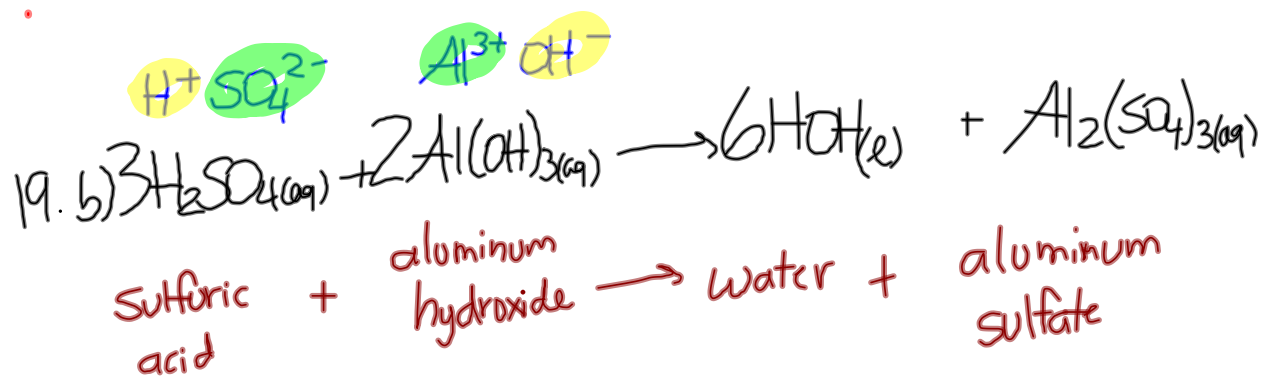 H⁺ SO₄²⁻ Al³⁺ OH⁻
19. b) 3H₂SO₄(aq) + 2Al(OH)₃(aq) → 6HOH(l) + Al₂(SO₄)₃(aq)
sulfuric acid + aluminum hydroxide → water + aluminum sulfate